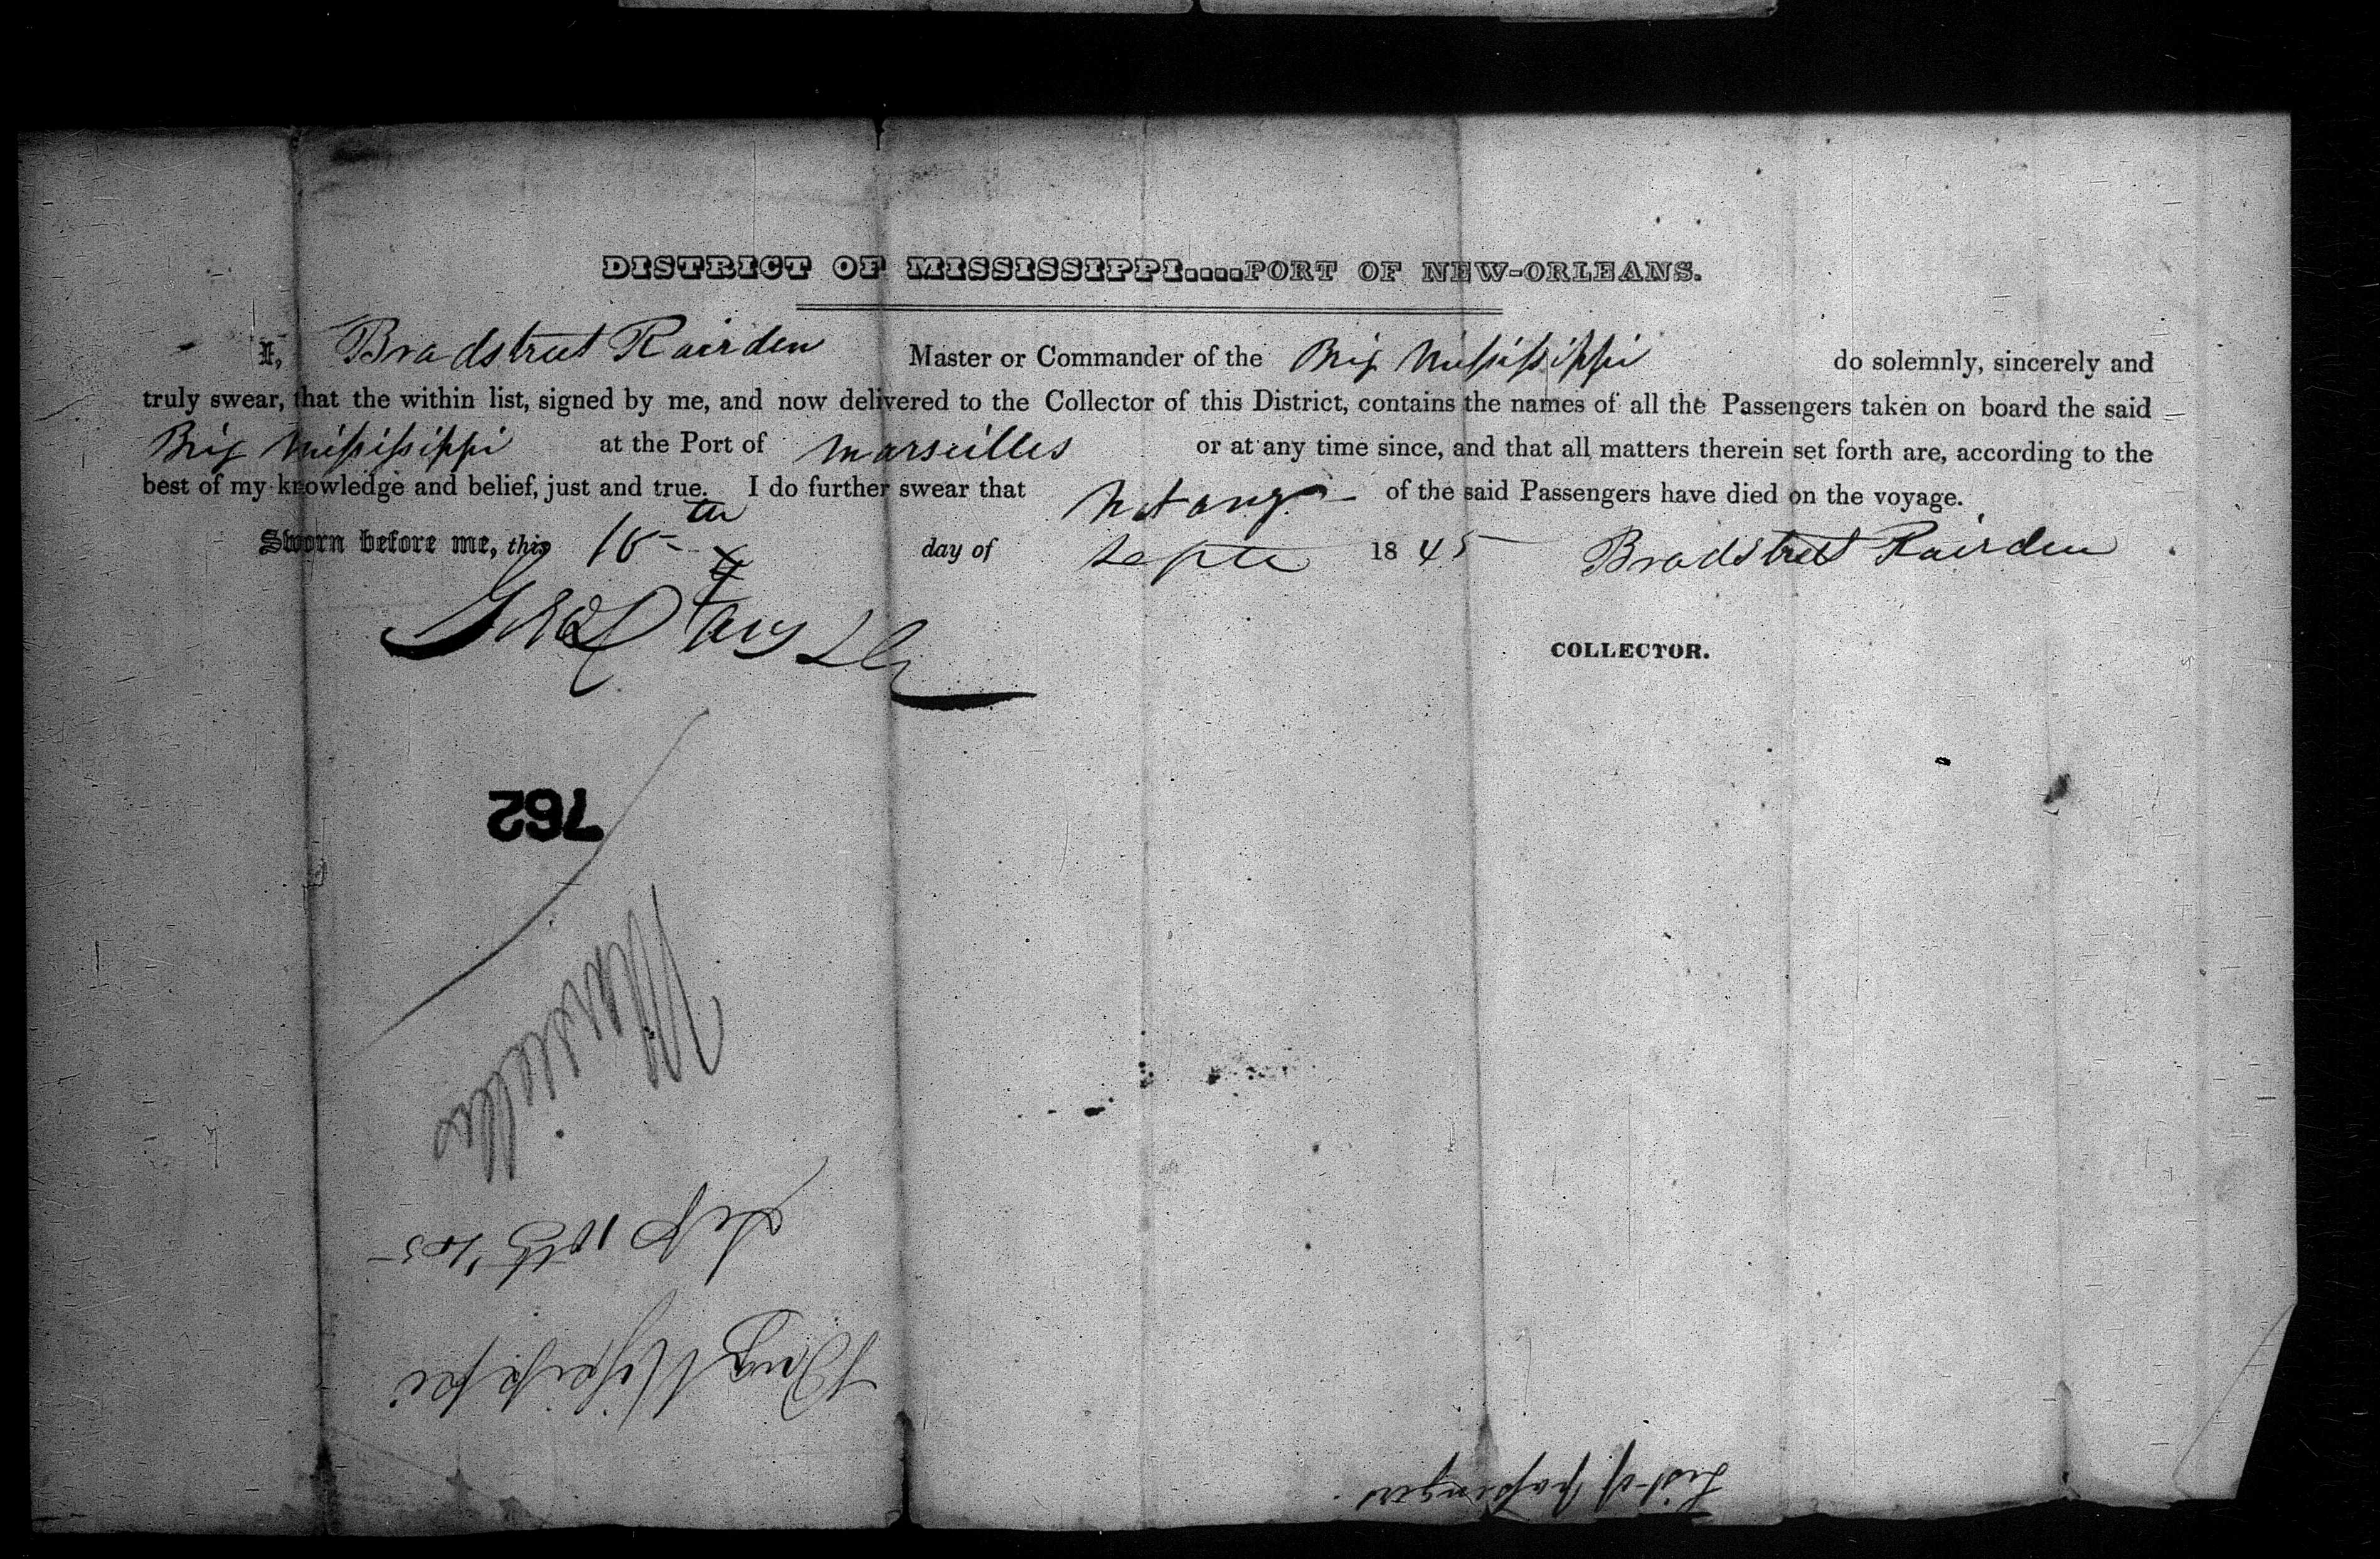 DISTRICT OF MISSISSIPPI....PORT OF NEW-ORLEANS.
I, Bradstreet Rairden Master or Commander of the Brig Mississippi do solemnly, sincerely and
truly swear, that the within list, signed by me, and now delivered to the Collector of this District, contains the names of all the Passengers taken on board the said
Brig Mississippi at the Port of Marseilles or at any time since, and that all matters therein set forth are, according to the
best of my knowledge and belief, just and true. I do further swear that Not any of the said Passengers have died on the voyage.
Sworn before me, this 10th day of Septe 1845 Bradstreet Rairden
COLLECTOR.
762
Marseilles
Sep 10th /45
Brig Mississippi
List of passengers.